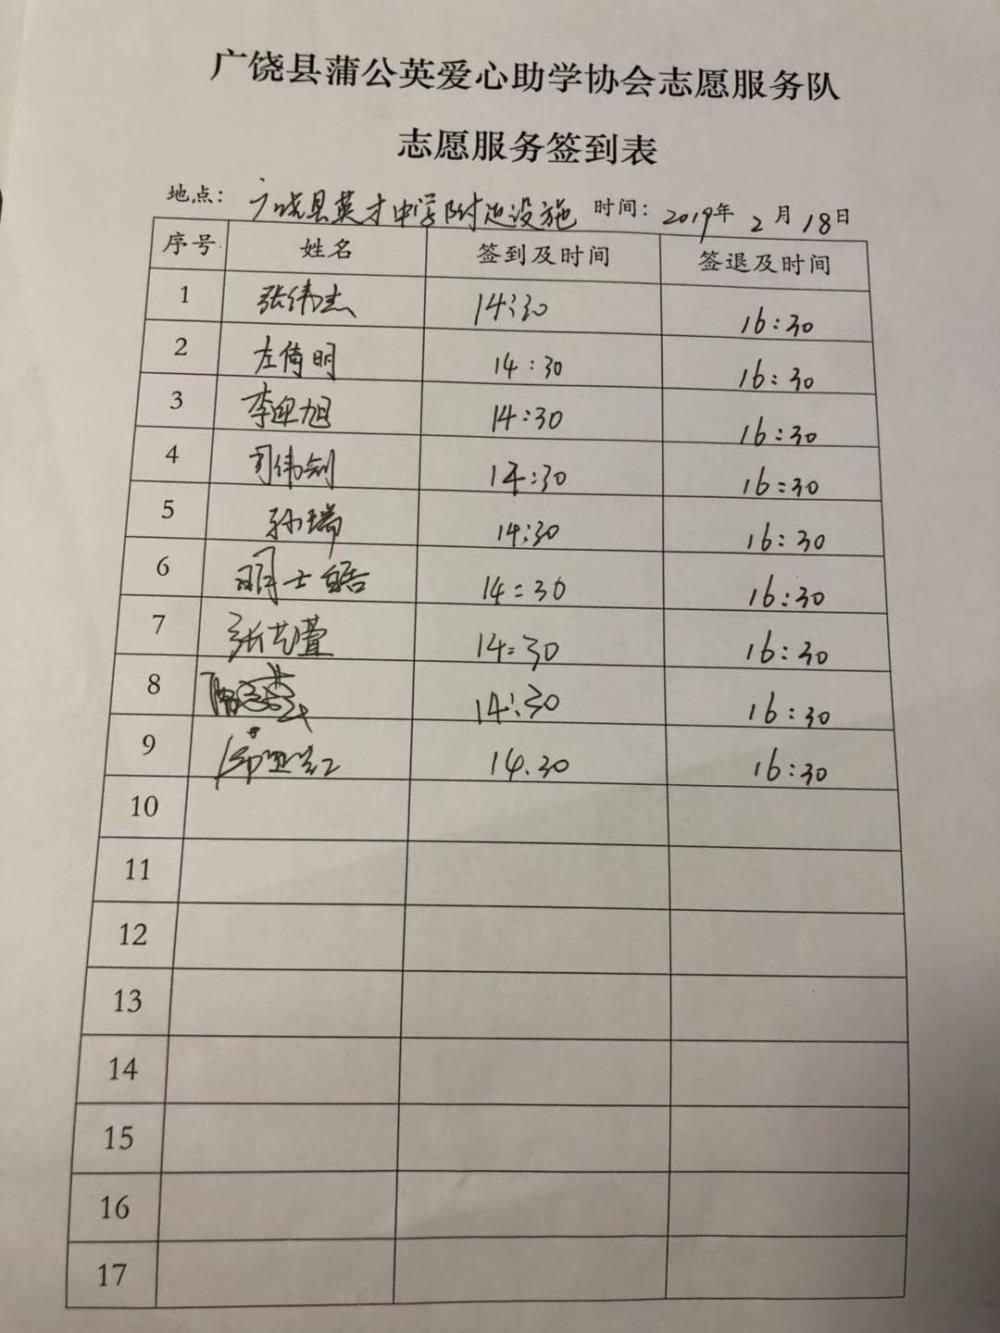 广饶县蒲公英爱心助学协会志愿服务队
志愿服务签到表
地点：广饶县英才中学附近设施 时间：2019年2月18日
序号 姓名 签到及时间 签退及时间
1 张伟杰 14:30 16:30
2 左倚明 14:30 16:30
3 李迎旭 14:30 16:30
4 司伟剑 14:30 16:30
5 孙瑞 14:30 16:30
6 14:30 16:30
7 张艺萱 14:30 16:30
8 14:30 16:30
9 14.30 16:30
10
11
12
13
14
15
16
17